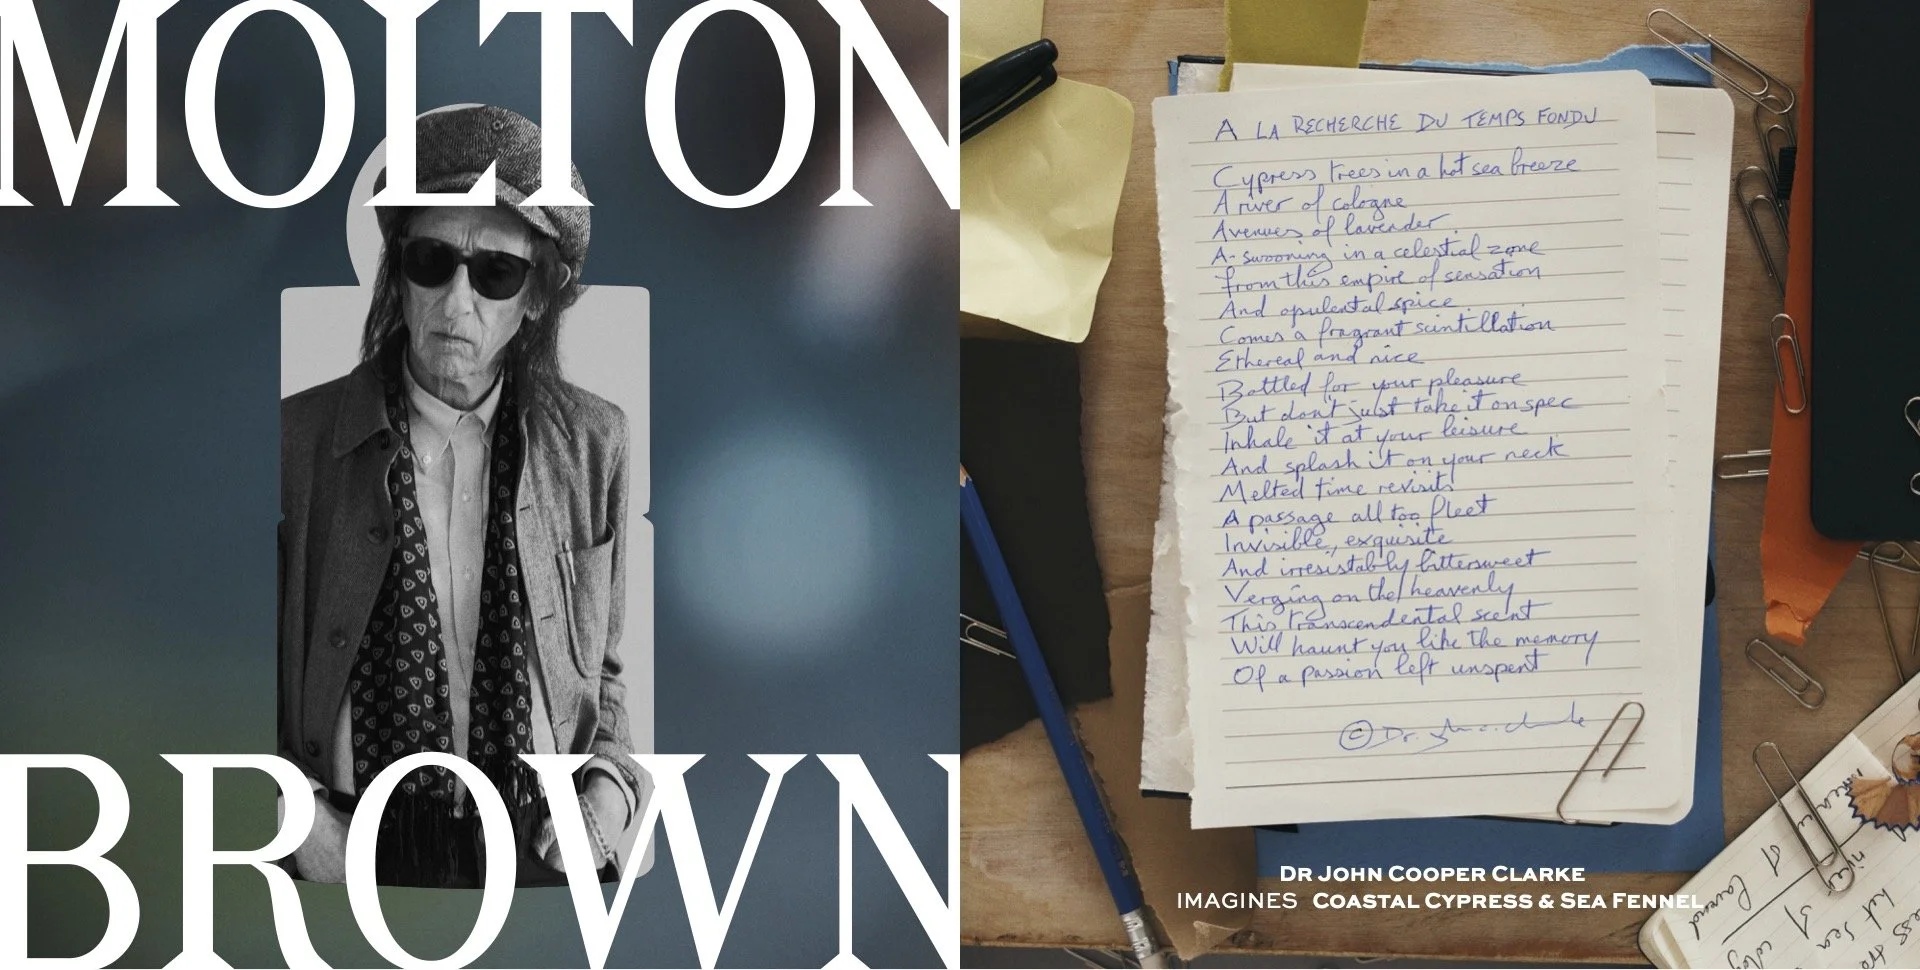 MOLTON
BROWN
A LA RECHERCHE DU TEMPS FONDU
Cypress trees in a hot sea breeze
A river of cologne
Avenues of lavender
A-swooning in a celestial zone
from this empire of sensation
And opulental spice
Comes a fragrant scintillation
Ethereal and nice
Bottled for your pleasure
But don't just take it on spec
Inhale it at your leisure
And splash it on your neck
Melted time revisits
A passage all too fleet
Invisible, exquisite
And irresistably bittersweet
Verging on the heavenly
This transcendental scent
Will haunt you like the memory
Of a passion left unspent
© Dr.
DR JOHN COOPER CLARKE
IMAGINES COASTAL CYPRESS & SEA FENNEL
hot sea